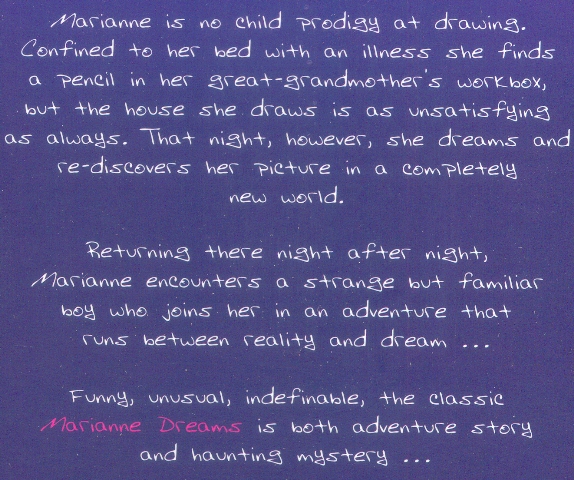 Marianne is no child prodigy at drawing.
Confined to her bed with an illness she finds
a pencil in her great-grandmother's workbox,
but the house she draws is as unsatisfying
as always. That night, however, she dreams and
re-discovers her picture in a completely
new world.
Returning there night after night,
Marianne encounters a strange but familiar
boy who joins her in an adventure that
runs between reality and dream ...
Funny, unusual, indefinable, the classic
Marianne Dreams is both adventure story
and haunting mystery ...